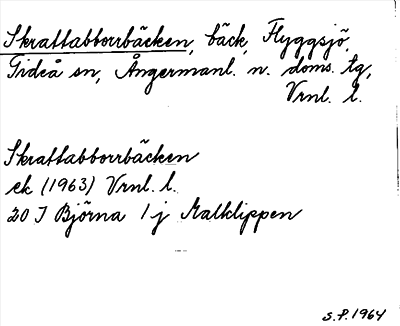 Skrattabborrbäcken, bäck, Flyggsjö,
Gideå sn, Ångermanl. n. doms. tg,
Vrnl. l.
Skrattabborrbäcken
ek (1963) Vrnl. l.
20 I Björna 1 j Malklippen
S.P. 1964